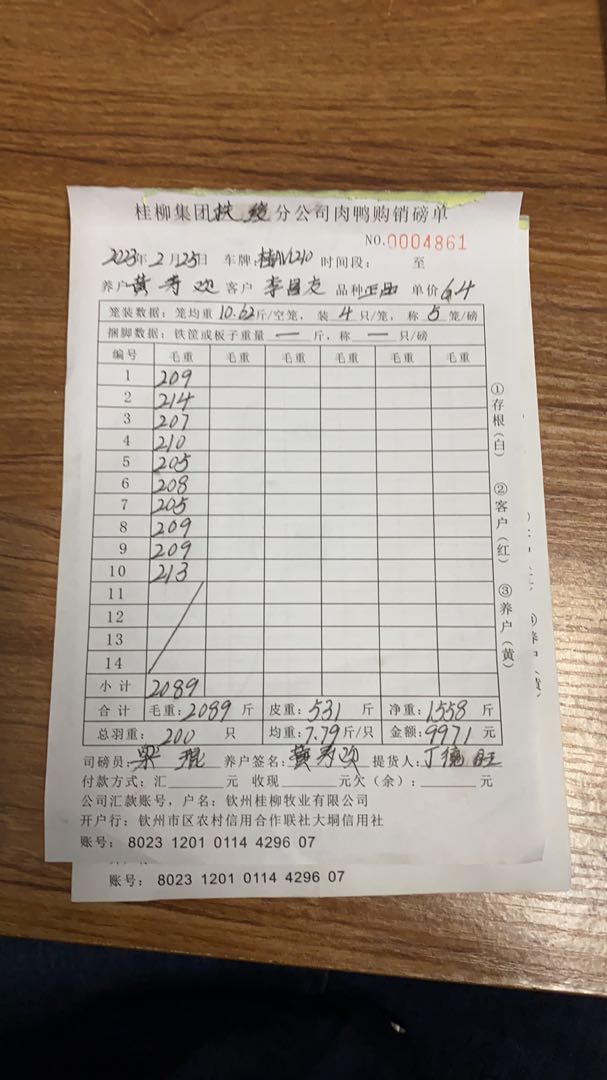 桂柳集团扶绥分公司肉鸭购销磅单
NO.0004861
2023年2月25日 车牌:桂AV1210 时间段: 至
养户黄寿欢 客户 李昌 品种 单价6.4
笼装数据:笼均重10.62斤/空笼,装4只/笼,称5笼/磅
捆脚数据:铁筐或板子重量一斤,称一只/磅
编号 毛重 毛重 毛重 毛重 毛重 毛重
1 209
2 214
3 207
4 210
5 205
6 208
7 205
8 209
9 209
10 213
11
12
13
14
小计 2089
合计 毛重:2089斤 皮重:531斤 净重:1558斤
总羽重: 200 只 均重:7.79斤/只 金额:9971元
司磅员:梁琨 养户签名:黄寿欢 提货人:丁旺
付款方式:汇____元 收现____元欠(余):____元
公司汇款账号,户名:钦州桂柳牧业有限公司
开户行:钦州市区农村信用合作联社大垌信用社
账号: 8023 1201 0114 4296 07
账号: 8023 1201 0114 4296 07
①存根(白)
②客户(红)
③养户(黄)